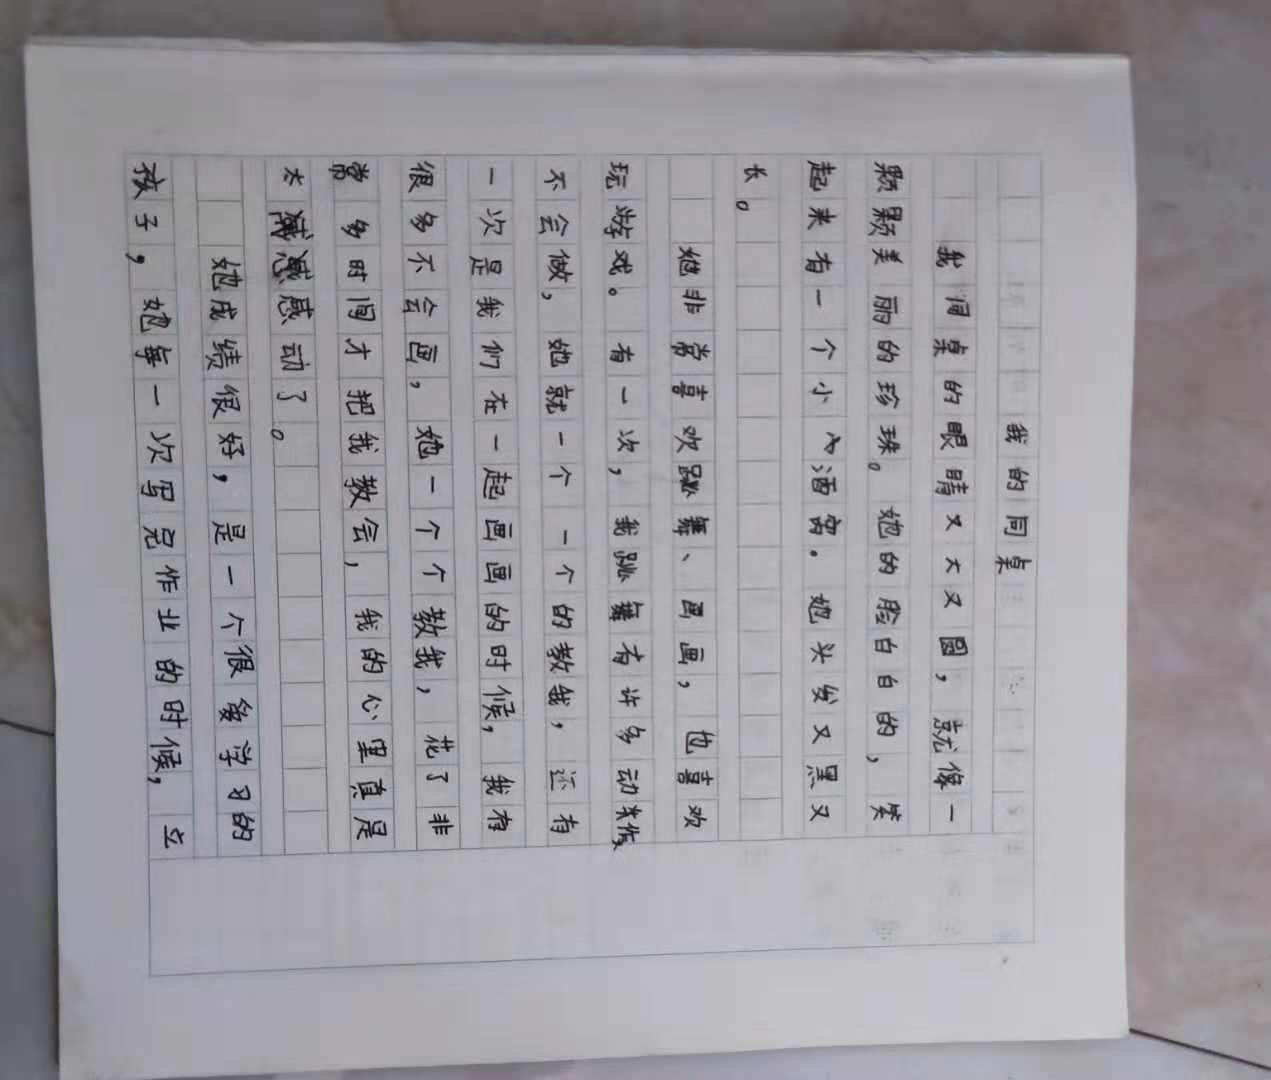 我的同桌
我同桌的眼睛又大又圆，就像一
颗颗美丽的珍珠。她的脸白白的，笑
起来有一个小酒窝。她头发又黑又
长。
她非常喜欢跳舞、画画，也喜欢
玩游戏。有一次，我跳舞有许多动作
不会做，她就一个一个的教我，还有
一次是我们在一起画画的时候，我有
很多不会画，她一个个教我，花了非
常多时间才把我教会，我的心里真是
太感动了。
她成绩很好，是一个很爱学习的
孩子，她每一次写完作业的时候，立